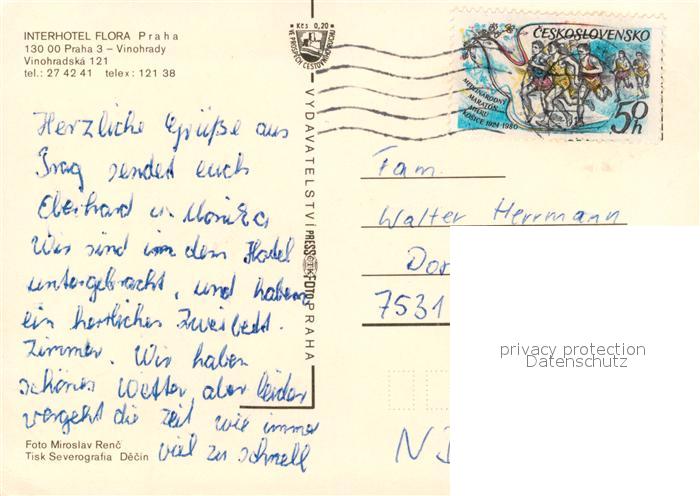 INTERHOTEL FLORA Praha
130 00 Praha 3 – Vinohrady
Vinohradská 121
tel.: 27 42 41 telex: 121 38
Herzliche Grüße aus
Prag sendet euch
Eberhard u. Monika
Wir sind in dem Hotel
untergebracht, und haben
ein herrliches Zweibett.
Zimmer. Wir haben
schönes Wetter, aber leider
vergeht die Zeit wie immer
viel zu schnell
Foto Miroslav Renč
Tisk Severografia Děčín
Kčs 0,20
VE PROSPĚCH CESTOVNÍHO RUCHU
VYDAVATELSTVÍ PRESSFOTO PRAHA
ČTK
ČESKOSLOVENSKO
MEDZINÁRODNÝ
MARATÓN
MIERU
KOŠICE 1924-1980
50h
Fam.
Walter Herrmann
7531
privacy protection
Datenschutz